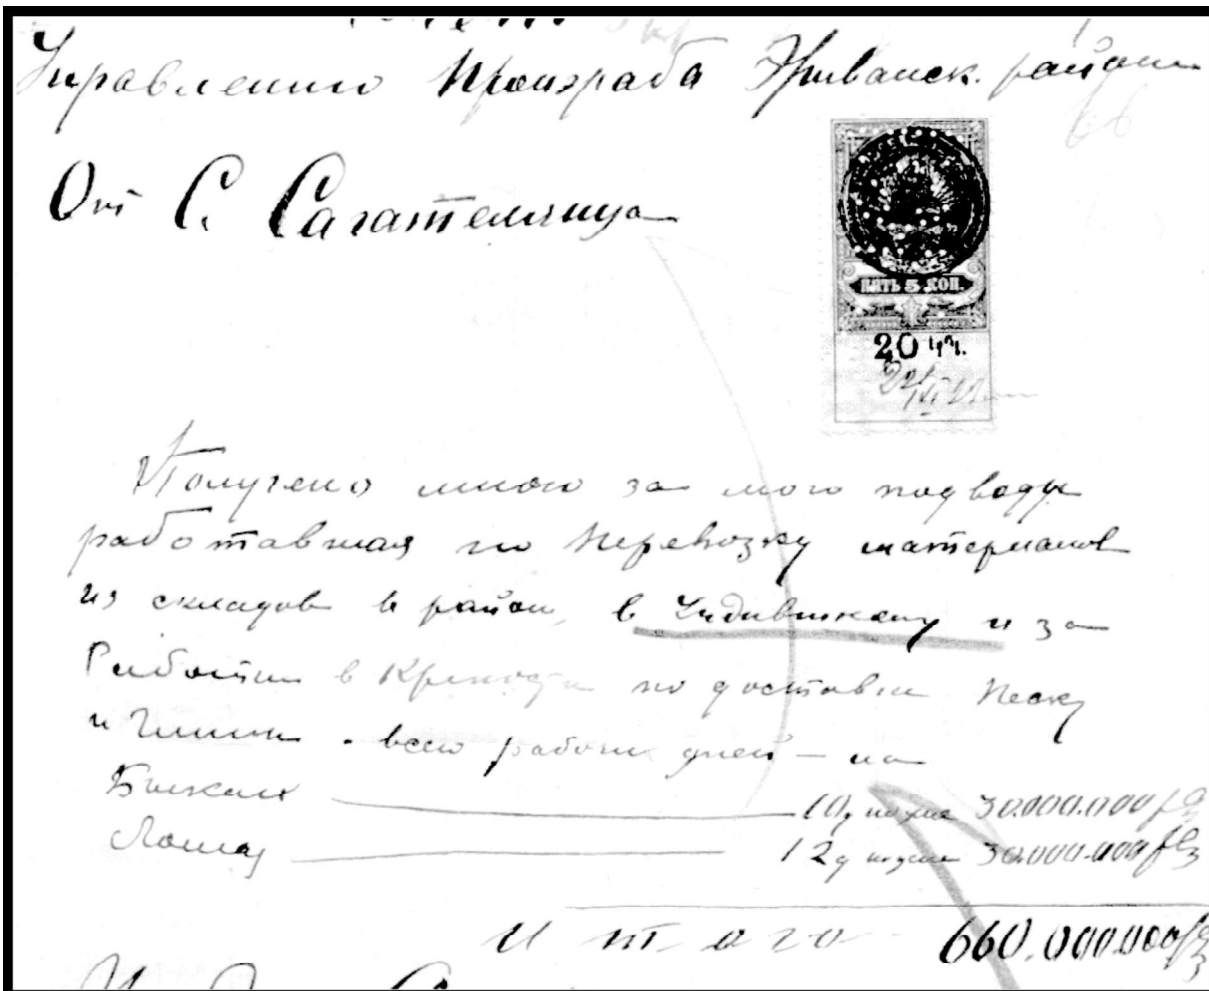 Управлению Произраба Эриванск. района
От С. Сагателянца
ПЯТЬ 5 КОП.
20
Получено мною за мою подводу
работавшая по перевозку материалов
из складов в район, в и за
Работы в по доставки песку
и Глины. всего рабочи дней — на
Быках 10 д 30.000.000 р
Лошад 12 д 30.000.000 р
Итого 660.000.000 р